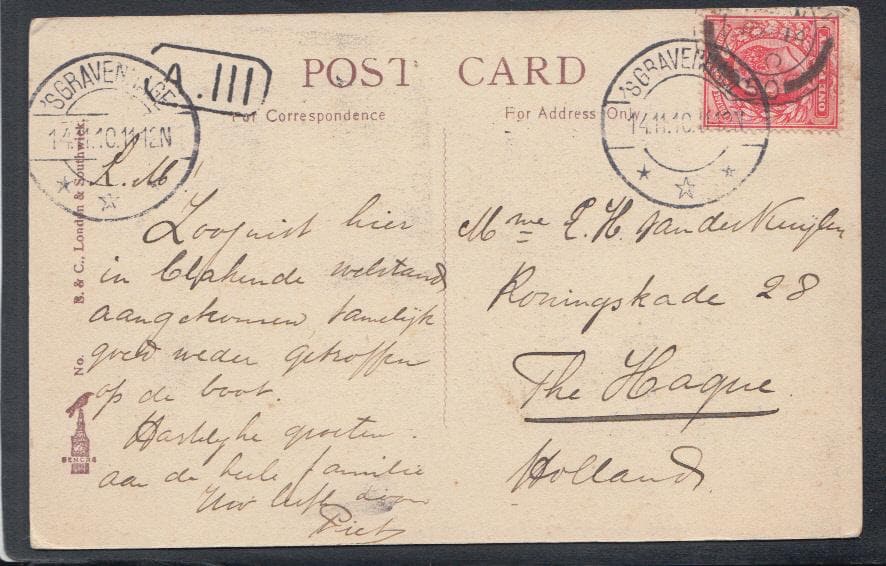 POST CARD
For Correspondence
For Address Only
'SGRAVENHAGE
14.11.10.11-12N
A.III
'SGRAVENHAGE
14.11.10.11-12N
ONE
No. B. & C., London & Southwick.
L. M!
Zoojuist hier
in blakende welstand
aangekomen, tamelijk
goed weder getroffen
op de boot.
Hartelijke groeten
aan de heele familie
Uw liefh. zoon
Piet
Mme E. H. van der
Koningskade 28
The Hague
Holland.